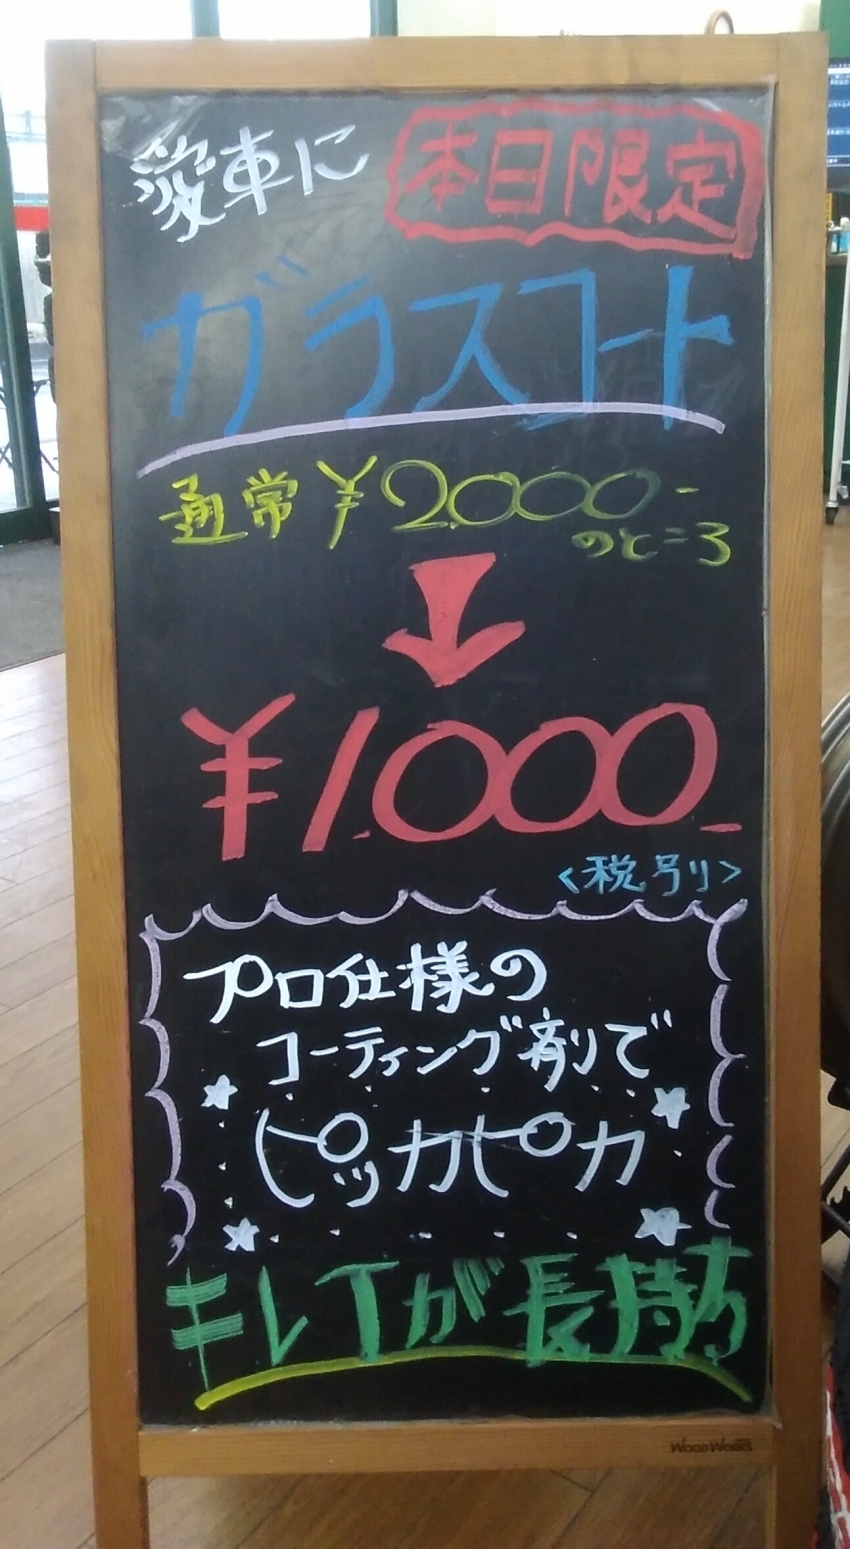 愛車に 本日限定
ガラスコート
通常¥2000-
のところ
¥1.000-
<税別り>
プロ仕様の
コーティング剤で
ピッカピカ
キレイが長持ち
WOODWORKS